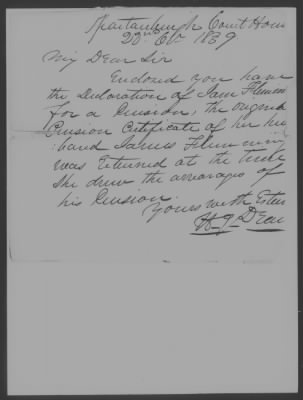 Spartanburgh Court House
22nd Oct 1839
My Dear Sir
Enclosed you have
the Declaration of Jane Flemin
for a Pension, the original
Pension Certificate of her hus
band James Flemming
was returned at the time
she drew the arrearages of
his Pension.
Yours with Esteem
Dean